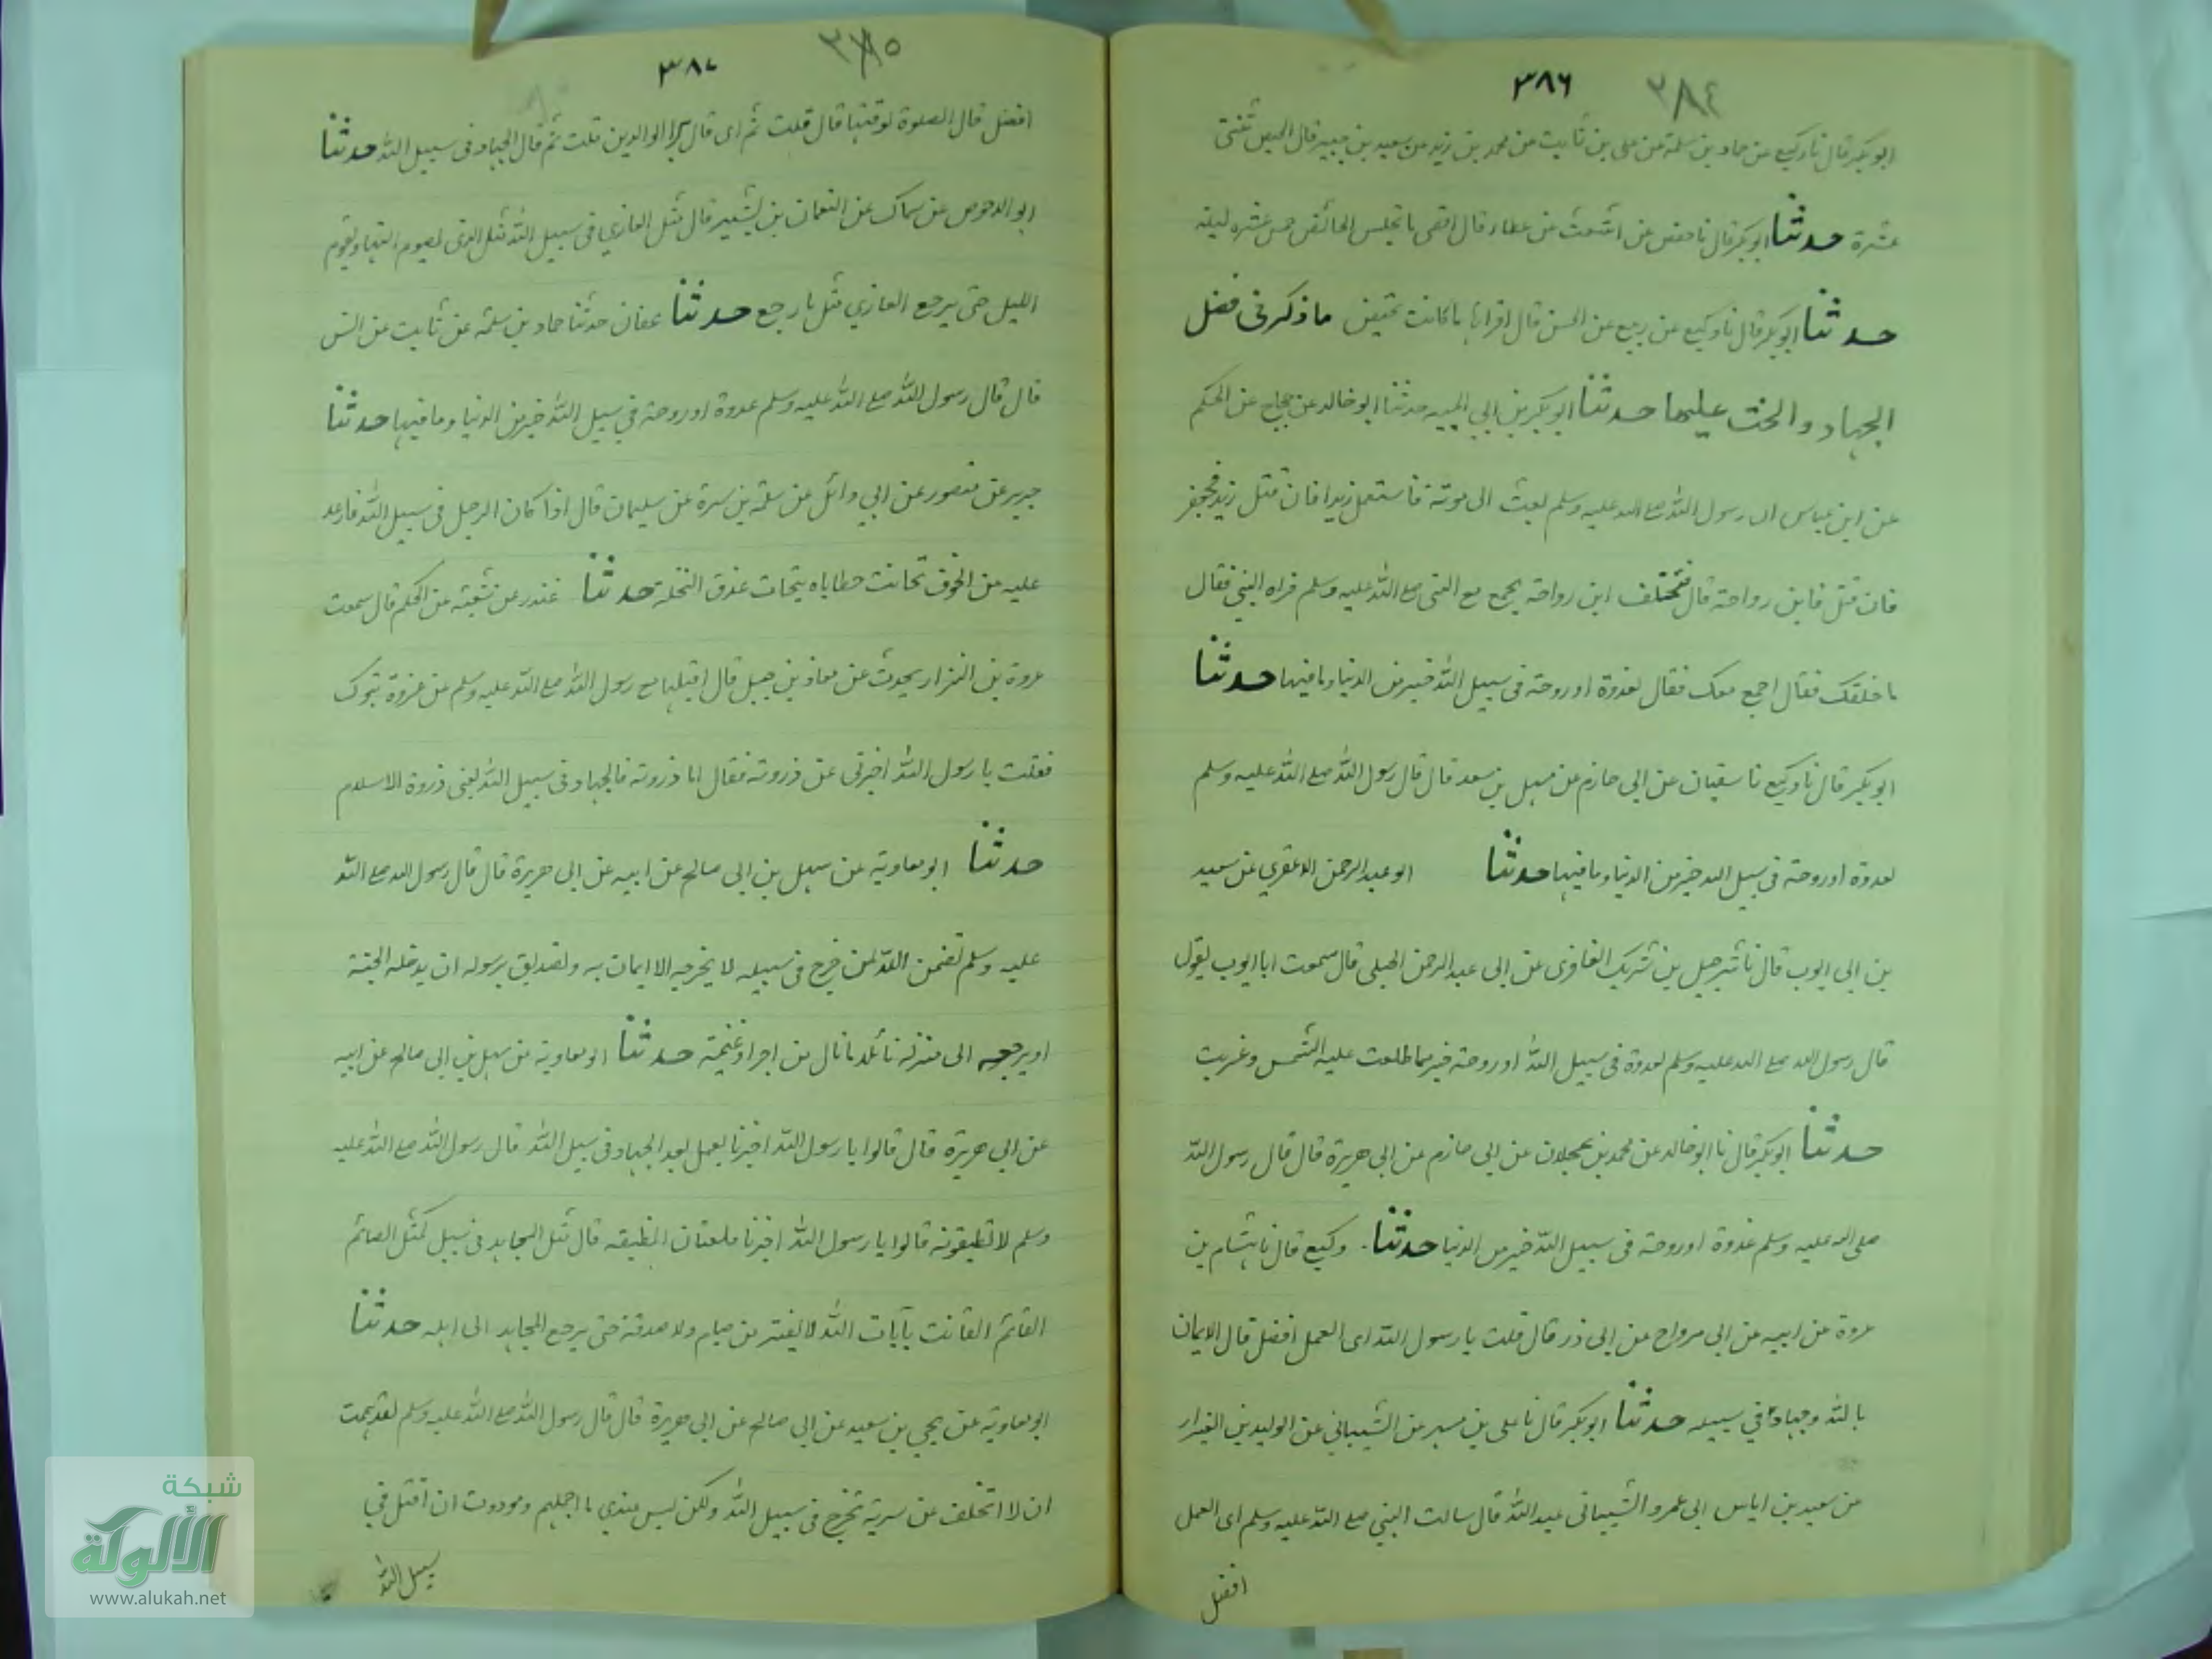 ٣٨٤ ٣٨٦
ابوبكر قال نا وكيع عن حماد بن سلمة عن على بن ثابت عن محمد بن زيد عن سعيد بن جبير قال الحيض ثلثى
عشرة حدثنا ابوبكر قال نا حفص عن اشعث عن عطاء قال اقصى ما تجلس الحائض خمس عشره ليلة
حدثنا ابوبكر قال نا وكيع عن ربيع عن الحسن قال اقرائها ما كانت تحيض ماذكر فى فضل
الجهاد والحث عليها حدثنا ابوبكر بن ابي حدثنا ابو خالد عن حجاج عن الحكم
عن ابن عباس ان رسول الله صلع الله عليه وسلم بعث الى موتة فاستعمل زيدا فان قتل زيد فجعفر
فان قتل فابن رواحة قال فتخلف ابن رواحة يجمع مع النبى صلع الله عليه وسلم فراه النبي فقال
ما خلفك فقال اجمع معك فقال لغدوة او روحة فى سبيل الله خير من الدنيا وما فيها حدثنا
ابوبكر قال نا وكيع نا سفيان عن ابى حازم عن سهل بن سعد قال قال رسول الله صلع الله عليه وسلم
لغدوة او روحة فى سبيل الله خير من الدنيا وما فيها حدثنا ابو عبد الرحمن المقري عن سعيد
بن ابى ايوب قال نا شرحبيل بن شريك الغافرى عن ابى عبد الرحمن الحبلى قال سمعت ابا ايوب يقول
قال رسول الله صلع الله عليه وسلم لغدوة فى سبيل الله او روحة خير مما طلعت عليه الشمس وغربت
حدثنا ابوبكر قال نا ابو خالد عن محمد بن عجلان عن ابى حازم عن ابى هريرة قال قال رسول الله
صلى الله عليه وسلم غدوة او روحة فى سبيل الله خير من الدنيا حدثنا وكيع قال نا هشام بن
عروة عن ابيه عن ابى مرواح عن ابى ذر قال قلت يا رسول الله اى العمل افضل قال الايمان
بالله وجهاد في سبيله حدثنا ابوبكر قال نا على بن مسهر عن الشيباني عن الوليد بن العيزار
عن سعيد بن اياس ابى عمرو الشيبانى عبد الله قال سالت النبي صلع الله عليه وسلم اى العمل
افضل
٣٨٥ ٣٨٧
افضل قال الصلوة لوقتها قال قلت ثم اى قال بر الوالدين قلت ثم قال الجهاد فى سبيل الله حدثنا
ابو الاحوص عن سماك عن النعمان بن بشير قال مثل الغازي فى سبيل الله مثل الذى يصوم النهار ويقوم
الليل حتى يرجع الغازي مثل ما رجع حدثنا عفان حدثنا حماد بن سلمة عن ثابت عن انس
قال قال رسول الله صلع الله عليه وسلم غدوة او روحة في سبيل الله خير من الدنيا وما فيها حدثنا
جرير عن منصور عن ابي وائل عن سلمة بن سبرة عن سليمان قال اذا كان الرجل فى سبيل الله فارعد
عليه من الخوف تحاتت خطاياه يتحات عذق النخلة حدثنا غندر عن شعبة عن الحكم قال سمعت
عروة بن النزار يحدث عن معاذ بن جبل قال اقبلها مع رسول الله صلع الله عليه وسلم عن غزوة تبوك
فقلت يا رسول الله اخبرنى عن ذروته فقال اما ذروته فالجهاد فى سبيل الله يعنى ذروة الاسلام
حدثنا ابو معاوية عن سهيل بن ابى صالح عن ابيه عن ابى هريرة قال قال رسول الله صلع الله
عليه وسلم تضمن الله لمن خرج فى سبيله لا يخرجه الا ايمان به وتصديق برسوله ان يدخله الجنة
او يرجعه الى منزله نائلا ما نال من اجر او غنيمة حدثنا ابو معاوية عن سهيل بن ابى صالح عن ابيه
عن ابي هريرة قال قالوا يا رسول الله اخبرنا بعمل يعد الجهاد فى سبيل الله قال رسول الله صلع الله عليه
وسلم لا تطيقونه قالوا يا رسول الله اخبرنا فلعنان نطيقه قال مثل المجاهد فى سبيل كمثل الصائم
القائم القانت بآيات الله لا يفتر من صيام ولا صدقة حتى يرجع المجاهد الى اهله حدثنا
ابو معاوية عن يحيى بن سعيد عن ابى صالح عن ابى هريرة قال قال رسول الله صلع الله عليه وسلم لقد هممت
ان لا اتخلف عن سرية تخرج فى سبيل الله ولكن ليس عندي ما احملهم ولوددت ان اقتل فى
سبيل الله
شبكة
الألوكة
www.alukah.net